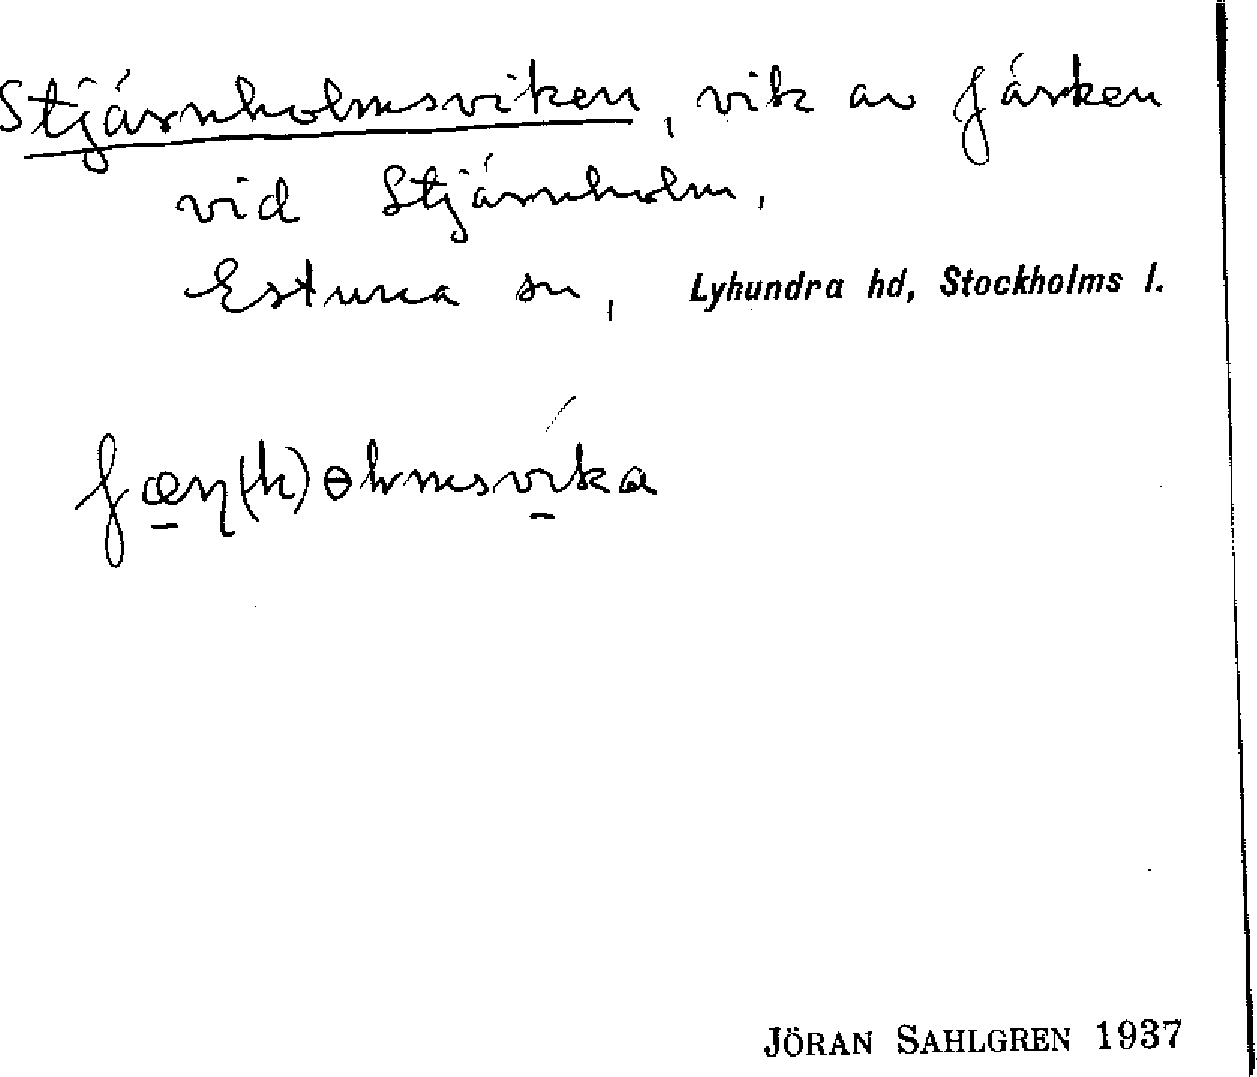 Stjärnholmsviken, vik av Järken
vid Stjärnholm,
Estuna sn, Lyhundra hd, Stockholms l.
JÖRAN SAHLGREN 1937